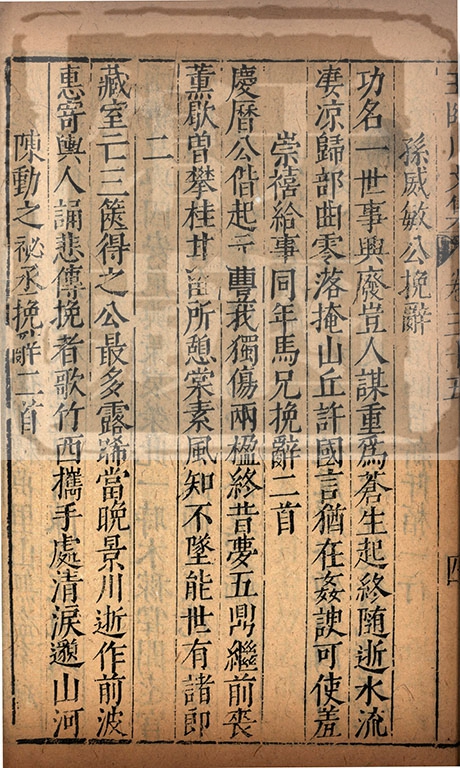 孫威敏公挽辭
功名一世事興廢豈人謀重爲蒼生起終隨逝水流
凄凉歸部曲零落掩山丘許國言猶在姦諛可使羞
崇禧給事同年馬兄挽辭二首
慶曆公偕起 豐我獨傷兩楹終昔夢五鼎繼前喪
薰歇曽攀桂甘留所憩棠素風知不墜能世有諸郎
二
藏室亡三篋得之公最多露晞當晚景川逝作前波
惠寄輿人誦悲傳挽者歌竹西攜手處清淚邈山河
陳動之祕丞挽辭二首
卷三十五
四